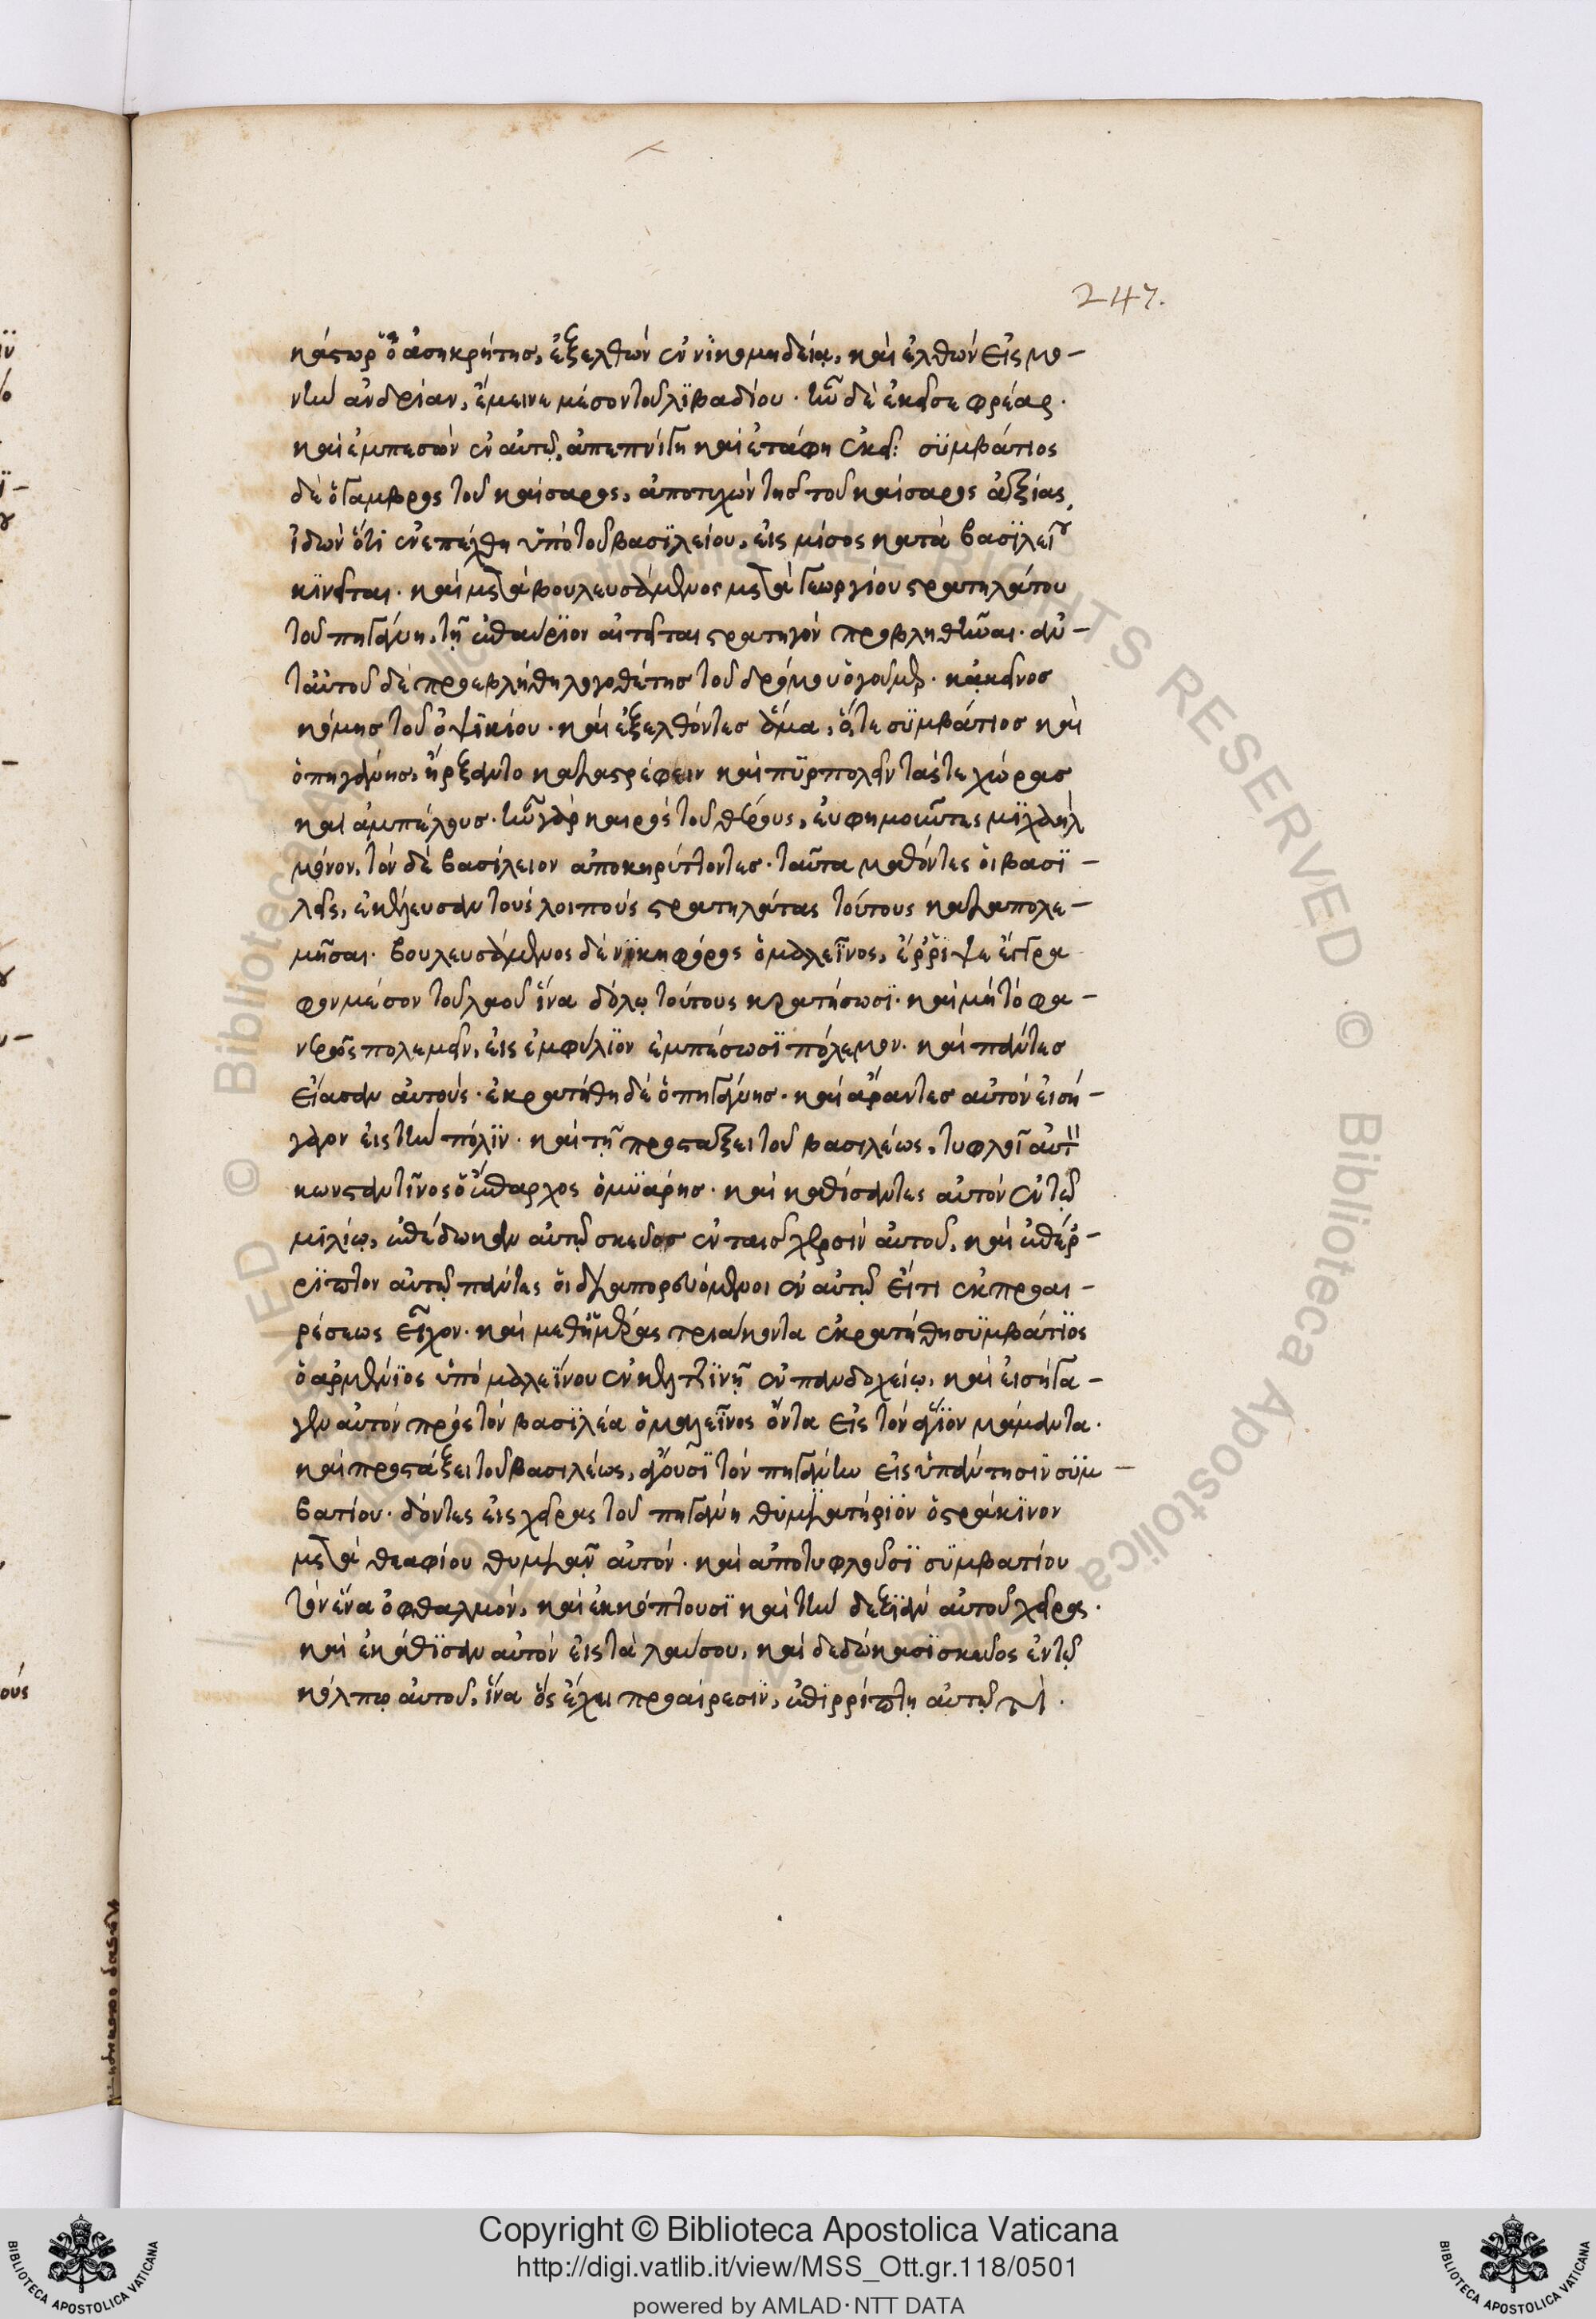 247.
κάστωρ ὁ ἀσηκρήτης, ἐξελθὼν ἐν νϊκομηδεία, καὶ ἐλθὼν εἰς μο-
νὴν ἀνδρίαν, ἔμεινε μέσον τοῦ λϊβαδίου. ἦν δὲ ἐκεῖσε φρέαρ.
καὶ ἐμπεσὼν ἐν αὐτῷ, ἀπεπνίγη καὶ ἐτάφη ἐκεῖ: σϋμβάτιος
δὲ ὁ γαμβρὸς τοῦ καίσαρος, ἀποτυχὼν τῆς τοῦ καίσαρος ἀξίας,
ἰδὼν ὅτι ἐνεπαίχθη ὑπὸ τοῦ βασϊλείου, εἰς μίσος κατὰ βασϊλείου
κϊνεῖται. καὶ μεταβουλευσάμενος μετὰ γεωργίου στρατηλάτου
τοῦ πηγάνη, τῇ ἐπαύρϊον αἰτεῖται στρατηγὸν προβληθῆναι. ἀν-
τ' αὐτοῦ δὲ προεβλήθη λογοθέτης τοῦ δρόμου ὁ γοῦμερ. κἀκεῖνος
κόμης τοῦ ὀψικίου. καὶ ἐξελθόντες ἅμα, ὅ,τε σϋμβάτιος καὶ
ὁ πηγάνης, ἤρξαντο καταστρέφειν καὶ πϋρπολεῖν τάς τε χώρας
καὶ ἀμπέλους. ἦν γὰρ καιρὸς τοῦ θέρους, εὐφημοῦντες μϊχαὴλ
μόνον, τὸν δὲ βασίλειον ἀποκηρύττοντες. ταῦτα μαθόντες οἱ βασϊ-
λεῖς, ἐκέλευσαν τοὺς λοιποὺς στρατηλάτας τούτους καταπολε-
μῆσαι. βουλευσάμενος δὲ νϊκηφόρος ὁ μαλεῖνος, ἔρριψε ἔγγρα
φον μέσον τοῦ λαοῦ ἵνα δόλῳ τούτους κρατήσωσϊ. καὶ μὴ τὸ φα-
νερῶς πολεμεῖν, εἰς ἐμφύλϊον ἐμπέσωσϊ πόλεμον. καὶ πάντες
εἴασαν αὐτούς. ἐκρατήθη δὲ ὁ πηγάνης. καὶ ἄραντες αὐτὸν εἰσή-
γαγον εἰς τὴν πόλϊν. καὶ τῇ προστάξει τοῦ βασιλέως, τυφλοῖ αὐτ
κωνσταντῖνος ὁ ἔπαρχος ὁ μϋάρης. καὶ καθίσαντες αὐτὸν ἐν τῷ
μϊλίῳ, ἐπέδωκαν αὐτῷ σκεῦος ἐν ταῖς χερσὶν αὐτοῦ, καὶ ἐπέρ-
ρϊπτον αὐτῷ πάντες οἱ διαπορευόμενοι ἐν αὐτῷ εἴτι ἐκ προαι-
ρέσεως εἶχον. καὶ μεθ' ἡμέρας τριάκοντα ἐκρατήθη σϋμβάτϊος
ὁ ἀρμένϊος ὑπὸ μαλεΐνου ἐν κελτζϊνῇ ἐν πανδοχείῳ. καὶ εἰσήγα-
γεν αὐτὸν πρὸς τὸν βασϊλέα ὁ μαλεῖνος ὄντα εἰς τὸν ἅγϊον μάμαντα.
καὶ προστάξει τοῦ βασιλέως, ἄγουσϊ τὸν πηγάνην εἰς ὑπάντησϊν σϋμ-
βατίου. δόντες εἰς χεῖρας τοῦ πηγάνη θυμϊατήρϊον ὀστράκϊνον
μετὰ θεαφίου θυμιᾶν αὐτόν. καὶ ἀποτυφλοῦσϊ σϋμβατίου
τὸν ἕνα ὀφθαλμόν, καὶ ἐκκόπτουσϊ καὶ τὴν δεξϊὰν αὐτοῦ χεῖρα.
καὶ ἐκάθϊσαν αὐτὸν εἰς τὰ λαύσου, καὶ δεδώκασϊ σκεῦος ἐν τῷ
κόλπῳ αὐτοῦ, ἵνα ὃς ἔχει προαίρεσϊν, ἐπϊρρίπτῃ αὐτῷ τὶ.
Copyright © Biblioteca Apostolica Vaticana
http://digi.vatlib.it/view/MSS_Ott.gr.118/0501
powered by AMLAD·NTT DATA